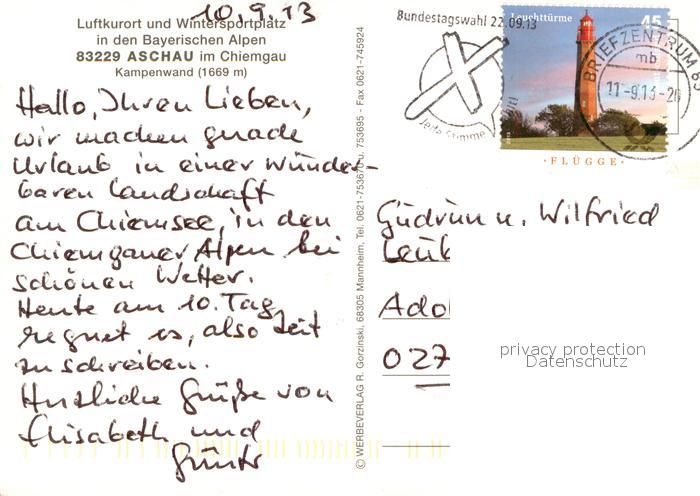 10.9.13
Luftkurort und Wintersportplatz
in den Bayerischen Alpen
83229 ASCHAU im Chiemgau
Kampenwand (1669 m)
Hallo, Ihren Lieben,
wir machen grade
Urlaub in einer wunder-
baren Landschaft
am Chiemsee, in den
Chiemgauer Alpen bei
schönen Wetter.
Heute am 10. Tag
regnet es, also Zeit
zu schreiben.
Herzliche Grüße von
Elisabeth und
Günter
© WERBEVERLAG R. Gorzinski, 68305 Mannheim, Tel. 0621-753670 u. 753695 - Fax 0621-745924
Bundestagswahl 22.09.13
Jede Stimme
Leuchttürme 45
FLÜGGE
BRIEFZENTRUM
mb
11.-9.13-20
Gudrun u. Wilfried
Leuk
Adol
027
privacy protection
Datenschutz